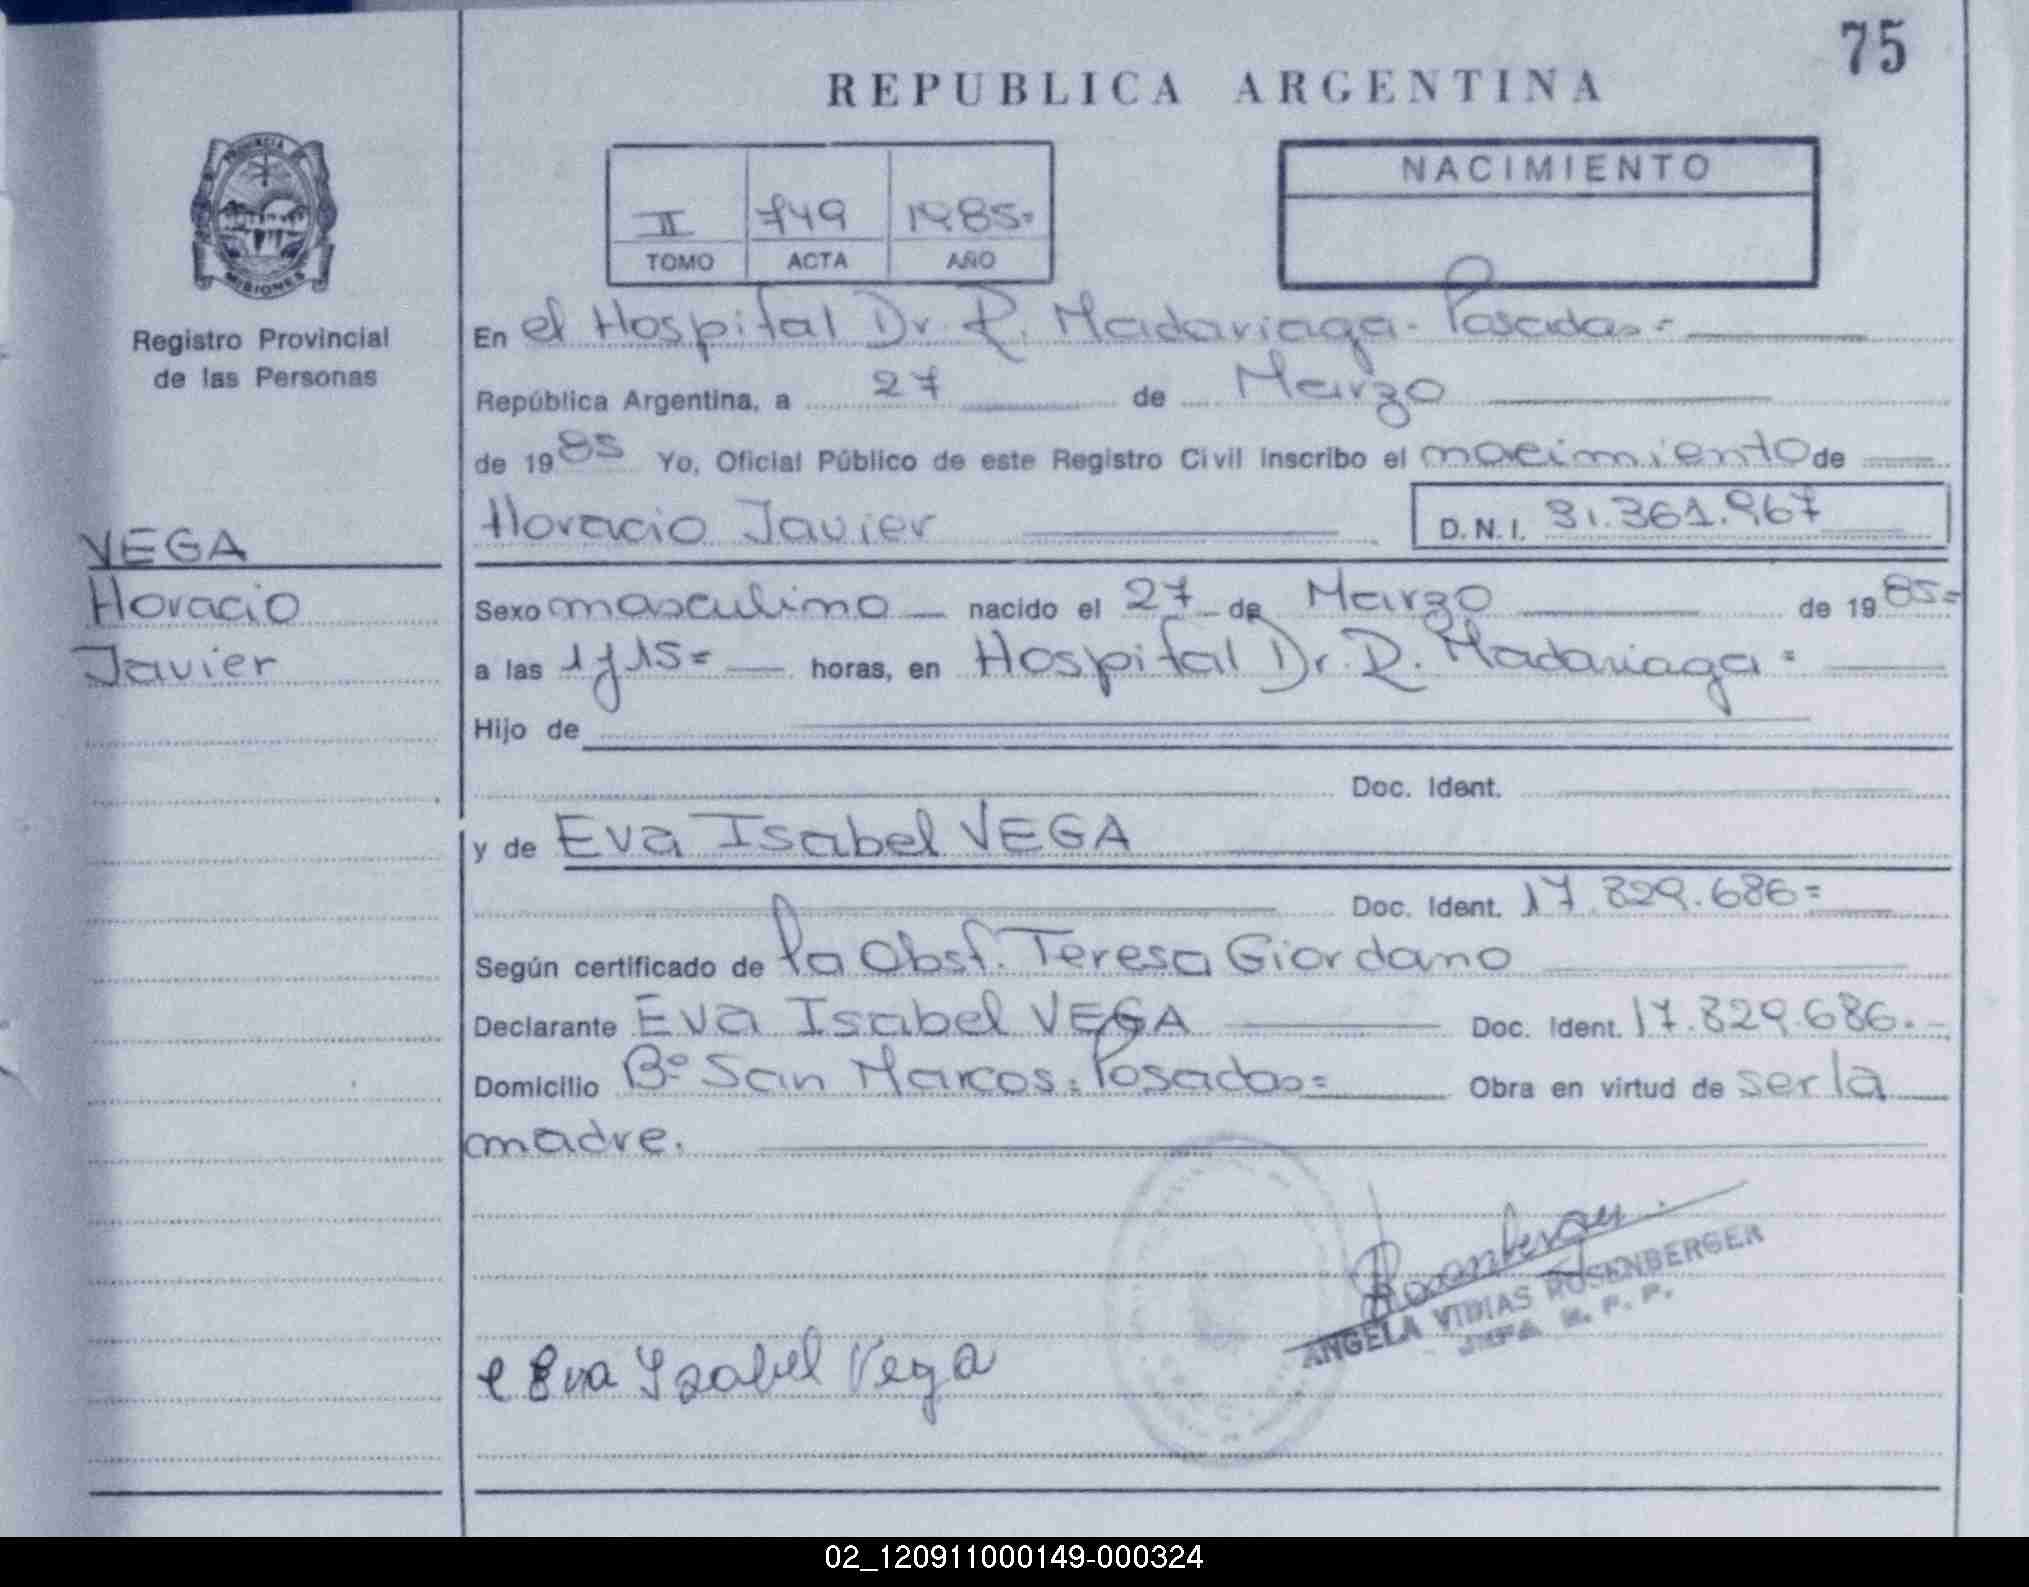 75
REPUBLICA ARGENTINA
PROVINCIA DE
MISIONES
NACIMIENTO
II 749 1985=
TOMO ACTA AÑO
Registro Provincial
de las Personas
En el Hospital Dr. R. Madariaga- Posadas=
República Argentina, a 27 de Marzo
de 1985 Yo, Oficial Público de este Registro Civil inscribo el nacimiento de
Horacio Javier D.N.I. 31.361.967
VEGA
Horacio
Javier
Sexo masculino nacido el 27 de Marzo de 1985=
a las 1 y 15= horas, en Hospital Dr. R. Madariaga=
Hijo de
Doc. Ident.
y de Eva Isabel VEGA
Doc. Ident. 17.829.686=
Según certificado de la Obst. Teresa Giordano
Declarante Eva Isabel VEGA Doc. Ident. 17.829.686.
Domicilio Bº San Marcos= Posadas= Obra en virtud de ser la
madre.
Rosenberger
ANGELA VIDIAS ROSENBERGER
JEFA R. P. P.
Eva Izabel Vega
02_120911000149-000324